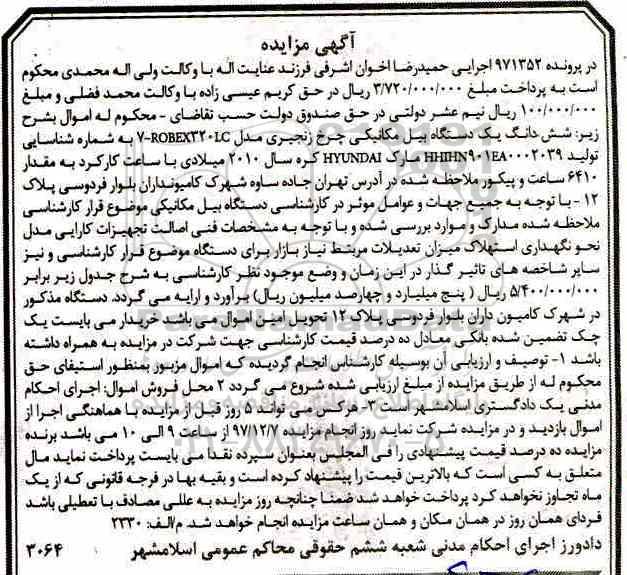 آگهی مزایده
در پرونده ۹۷۱۳۵۲ اجرایی حمیدرضا اخوان اشرفی فرزند عنایت اله با وکالت ولی اله محمدی محکوم
است به پرداخت مبلغ ۳/۷۲۰/۰۰۰/۰۰۰ ریال در حق کریم عیسی زاده با وکالت محمد فضلی و مبلغ
۱۰۰/۰۰۰/۰۰۰ ریال نیم عشر دولتی در حق صندوق دولت حسب تقاضای - محکوم له اموال بشرح
زیر: شش دانگ یک دستگاه بیل مکانیکی چرخ زنجیری مدل ۷-ROBEX۳۲۰LC به شماره شناسایی
تولید HHIHN۹۰۱EA۰۰۰۲۰۳۹ مارک HYUNDAI کره سال ۲۰۱۰ میلادی با ساعت کارکرد به مقدار
۶۴۱۰ ساعت و پیکور ملاحظه شده در آدرس تهران جاده ساوه شهرک کامیونداران بلوار فردوسی پلاک
۱۲ - با توجه به جمیع جهات و عوامل موثر در کارشناسی دستگاه بیل مکانیکی موضوع قرار کارشناسی
ملاحظه شده مدارک و موارد بررسی شده و با توجه به مشخصات فنی اصالت تجهیزات کارایی مدل
نحو نگهداری استهلاک میزان تعدیلات مرتبط نیاز بازار برای دستگاه موضوع قرار کارشناسی و نیز
سایر شاخصه های تاثیر گذار در این زمان و وضع موجود نظر کارشناسی به شرح جدول زیر برابر
۵/۴۰۰/۰۰۰/۰۰۰ ریال ( پنج میلیارد و چهارصد میلیون ریال) برآورد و ارایه می گردد. دستگاه مذکور
در شهرک کامیون داران بلوار فردوسی پلاک ۱۲ تحویل امین اموال می باشد خریدار می بایست یک
چک تضمین شده بانکی معادل ده درصد قیمت کارشناسی جهت شرکت در مزایده به همراه داشته
باشد ۱- توصیف و ارزیابی آن بوسیله کارشناس انجام گردیده که اموال مزبور بمنظور استیفای حق
محکوم له از طریق مزایده از مبلغ ارزیابی شده شروع می گردد ۲ محل فروش اموال: اجرای احکام
مدنی یک دادگستری اسلامشهر است ۳- هرکس می تواند ۵ روز قبل از مزایده با هماهنگی اجرا از
اموال بازدید و در مزایده شرکت نماید روز انجام مزایده ۹۷/۱۲/۷ از ساعت ۹ الی ۱۰ می باشد برنده
مزایده ده درصد قیمت پیشنهادی را فی المجلس بعنوان سپرده نقدا می بایست پرداخت نماید مال
متعلق به کسی است که بالاترین قیمت را پیشنهاد کرده است و بقیه بها در فرجه قانونی که از یک
ماه تجاوز نخواهد کرد پرداخت خواهد شد ضمنا چنانچه روز مزایده به عللی مصادف با تعطیلی باشد
فردای همان روز در همان مکان و همان ساعت مزایده انجام خواهد شد. م/الف: ۲۳۳۰
دادورز اجرای احکام مدنی شعبه ششم حقوقی محاکم عمومی اسلامشهر ۳۰۶۴